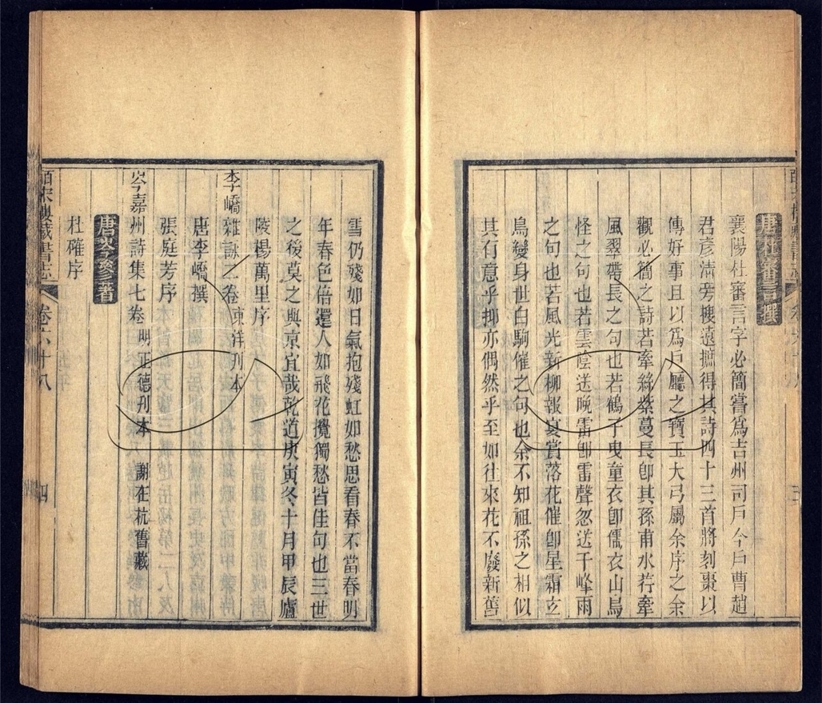 唐杜審言撰
襄陽杜審言字必簡嘗爲吉州司戶今戶曹趙
君彥清旁搜遠摭得其詩四十三首將刻棗以
傳好事且以爲戶廳之寶玉大弓屬余序之余
觀必簡之詩若牽絲紫蔓長卽其孫甫水荇牽
風翠帶長之句也若鶴子曳童衣卽儒衣山鳥
怪之句也若雲陰送晚雷卽雷聲忽送千峰雨
之句也若風光新柳報宴賞落花催卽星霜玄
鳥變身世白駒催之句也余不知祖孫之相似
其有意乎抑亦偶然乎至如往來花不廢新舊
雪仍殘如日氣抱殘虹如愁思看春不當春明
年春色倍還人如飛花攪獨愁皆佳句也三世
之後莫之與京宜哉乾道庚寅冬十月甲辰廬
陵楊萬里序
李嶠雜詠二卷 東洋刊本
唐李嶠撰
張庭芳序
岑嘉州詩集七卷 明正德刊本 謝在杭舊藏
唐岑參著
杜確序
皕宋樓藏書志 卷六十八 四